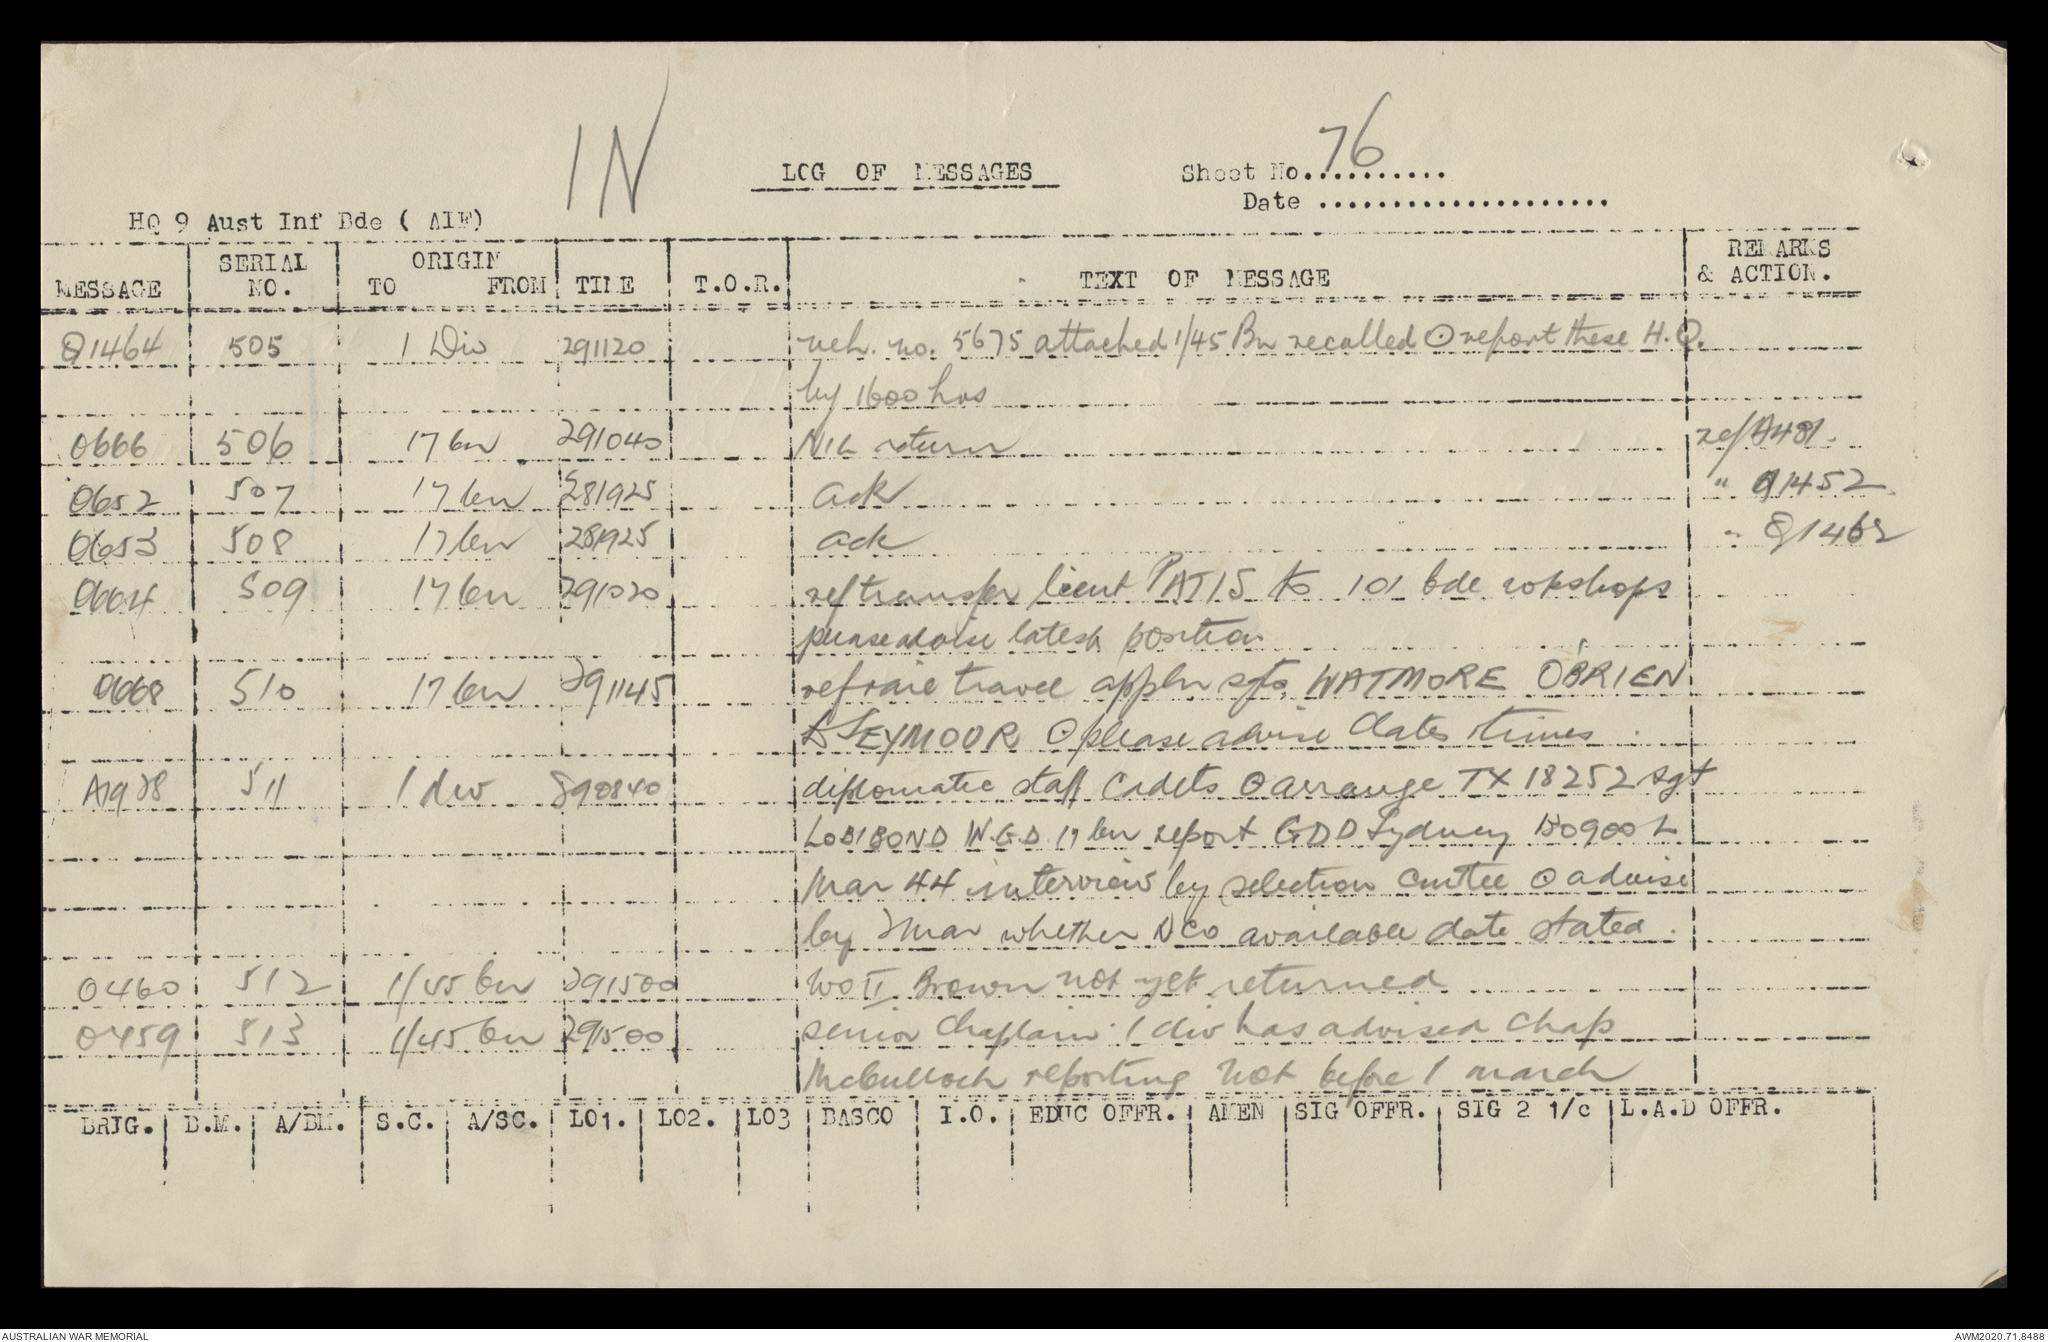 IN
LOG OF MESSAGES
Sheet No. 76
Date
HQ 9 Aust Inf Bde ( AIF)
MESSAGE SERIAL NO. ORIGIN TO FROM TIME T.O.R. TEXT OF MESSAGE REMARKS & ACTION.
Q1464 505 1 Div 291120 veh. no. 5675 attached 1/45 Bn recalled ⊙ report these H.Q.
by 1600 hrs
O666 506 17 bn 291040 NIL return ref A481.
O652 507 17 bn 281925 ack " Q1452
O653 508 17 bn 281925 ack " Q1462
O664 509 17 bn 291020 ref transfer lieut PATIS to 101 bde wkshops
please advise latest position
O668 510 17 bn 291145 ref travel appln sgts WATMORE O'BRIEN
& SEYMOUR ⊙ please advise dates times
A1928 511 1 div 290840 diplomatic staff cadets ⊙ arrange TX 18252 sgt
W.G.D 17 bn report GDD Sydney
Mar 44 interview by selection cmtee ⊙ advise
by 2 mar whether NCO available date stated.
O460 512 1/45 bn 291500 WO II Brown not yet returned
O459 513 1/45 bn 291500 senior chaplain 1 div has advised chap
McCulloch reporting not before 1 march
BRIG. B.M. A/BM. S.C. A/SC. LO1. LO2. LO3 BASCO I.O. EDUC OFFR. AMEN SIG OFFR. SIG 2 1/c L.A.D OFFR.
AUSTRALIAN WAR MEMORIAL
AWM2020.71.8488